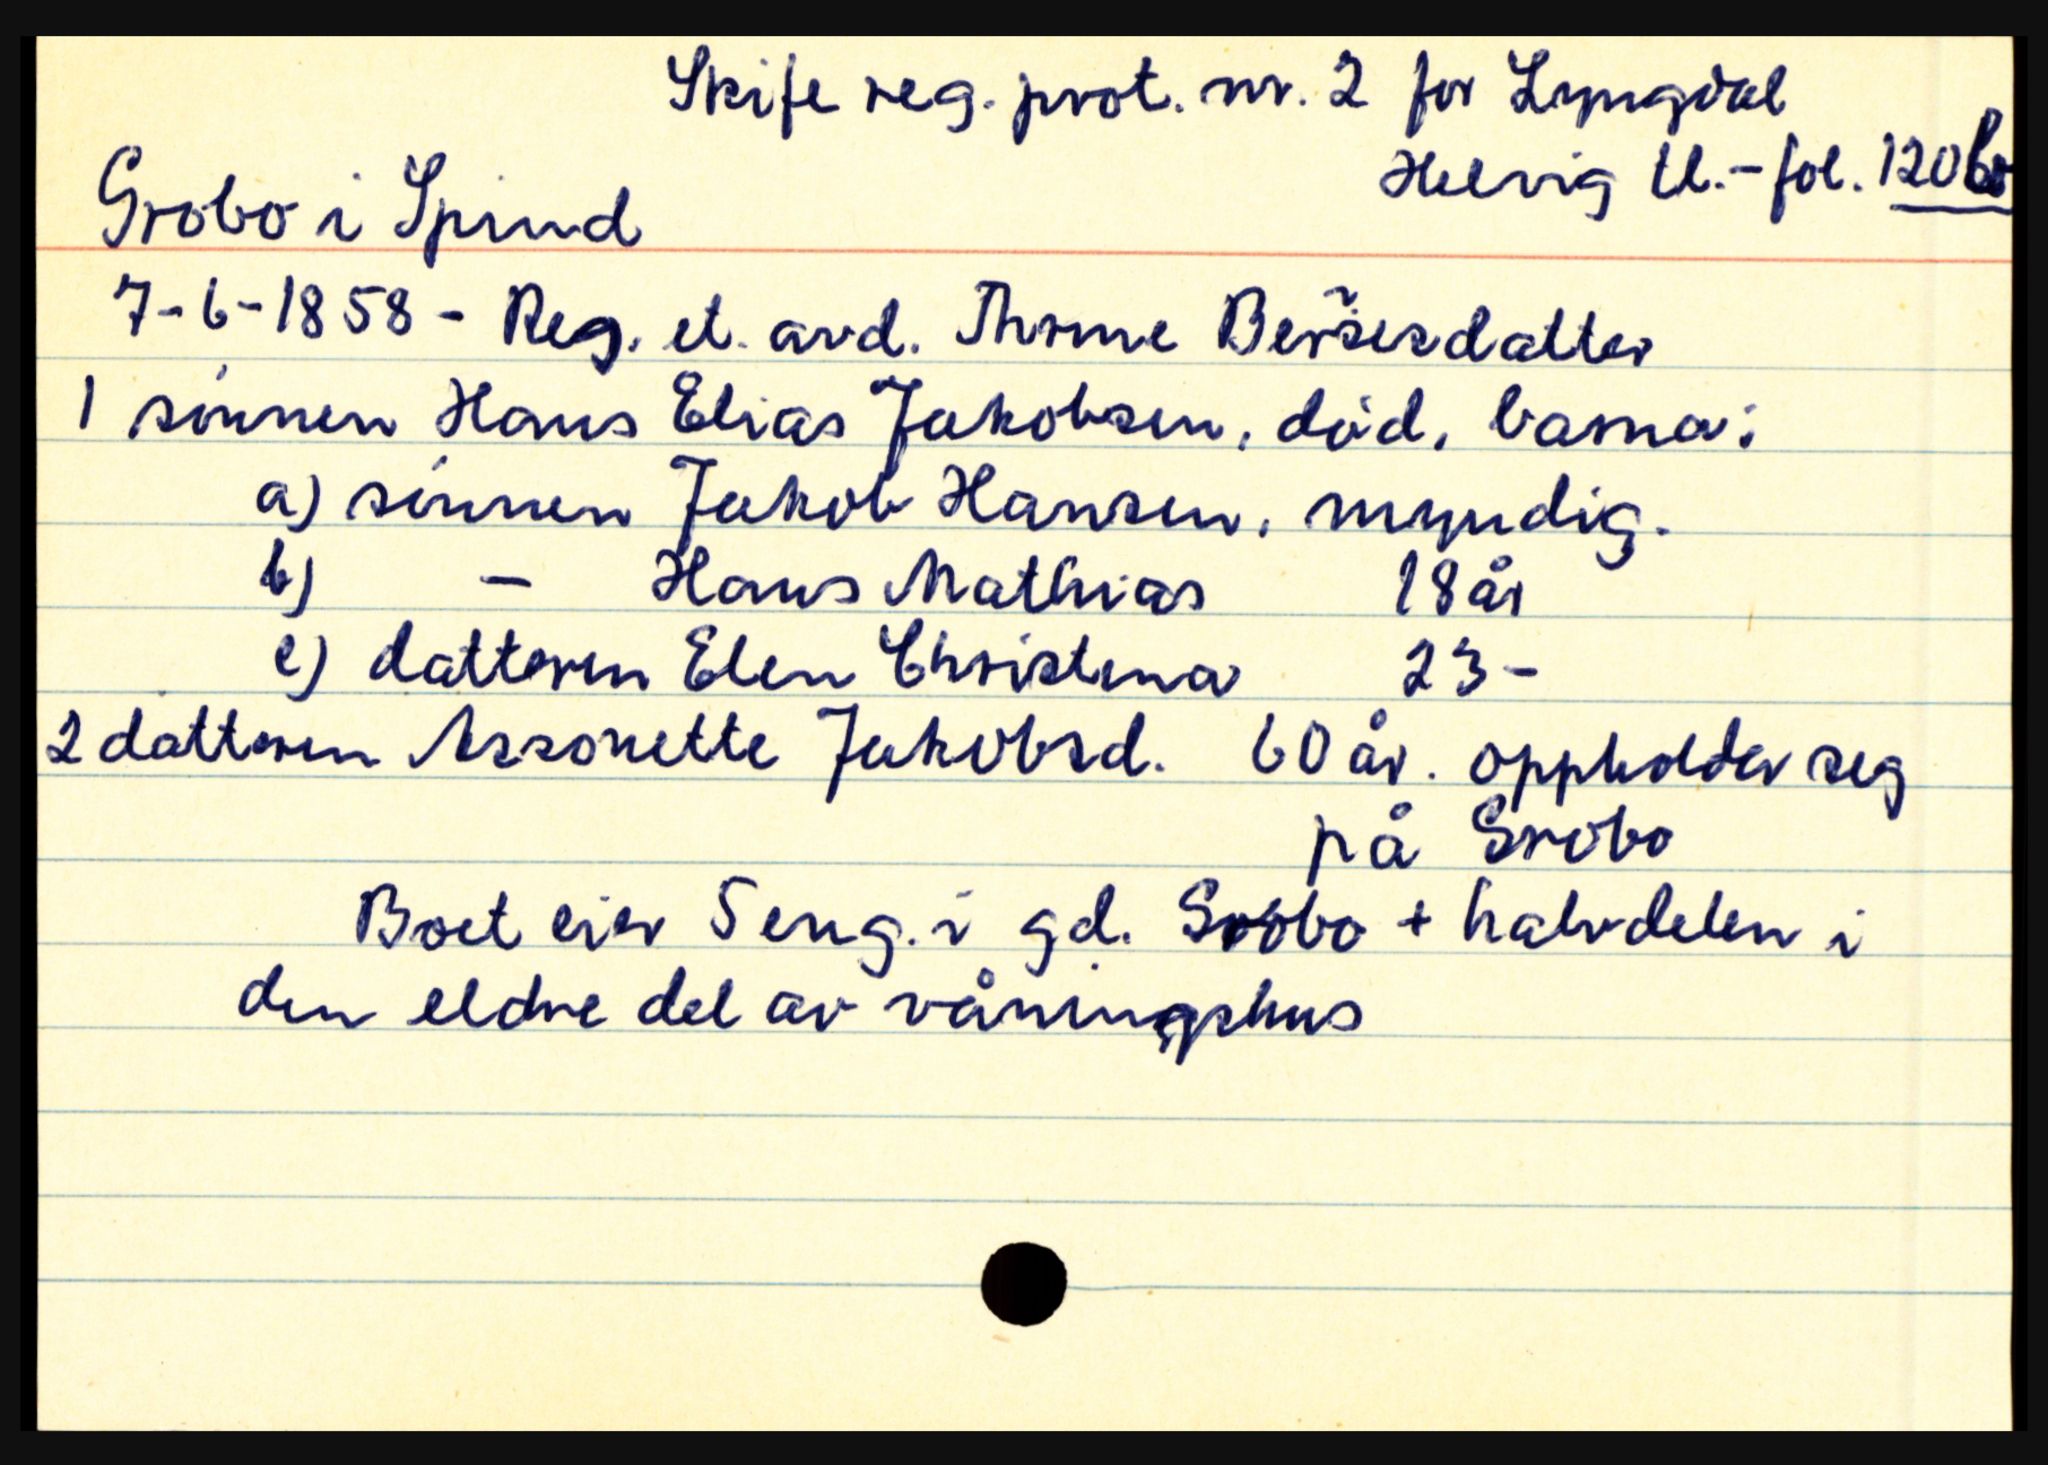 Skife reg. prot. nr. 2 for Lyngdal
Helvig tl. - fol. 120 b
Grobo i Spind
7-6-1858 - Reg. et. avd. Thrine
1 sønnen Hans Elias Jakobsen, død, barna:
a) sønnen Jakob Hansen, myndig.
b) - Hans Mathias 18 år
c) datteren Elen Christina 23 -
2 datteren Assonette Jakobsd. 60 år. oppholder seg
på Grobo
Boet eier 5 eng. i gd. Grobo + halvdelen i
den eldre del av våningshus